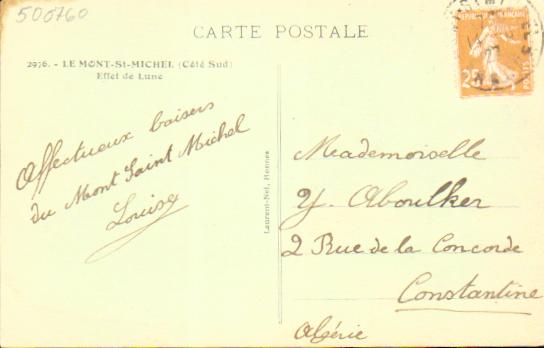 500760
CARTE POSTALE
2976. - LE MONT-St-MICHEL (Côté Sud)
Effet de Lune
Affectueux baisers
du Mont Saint Michel
Louise
Laurent-Nel, Rennes
REPUBLIQUE FRANÇAISE
25
POSTES
Mademoiselle
Y. Aboulker
2 Rue de la Concorde
Constantine
Algérie